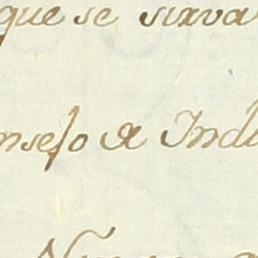 que se sirva
nsejo de Indi